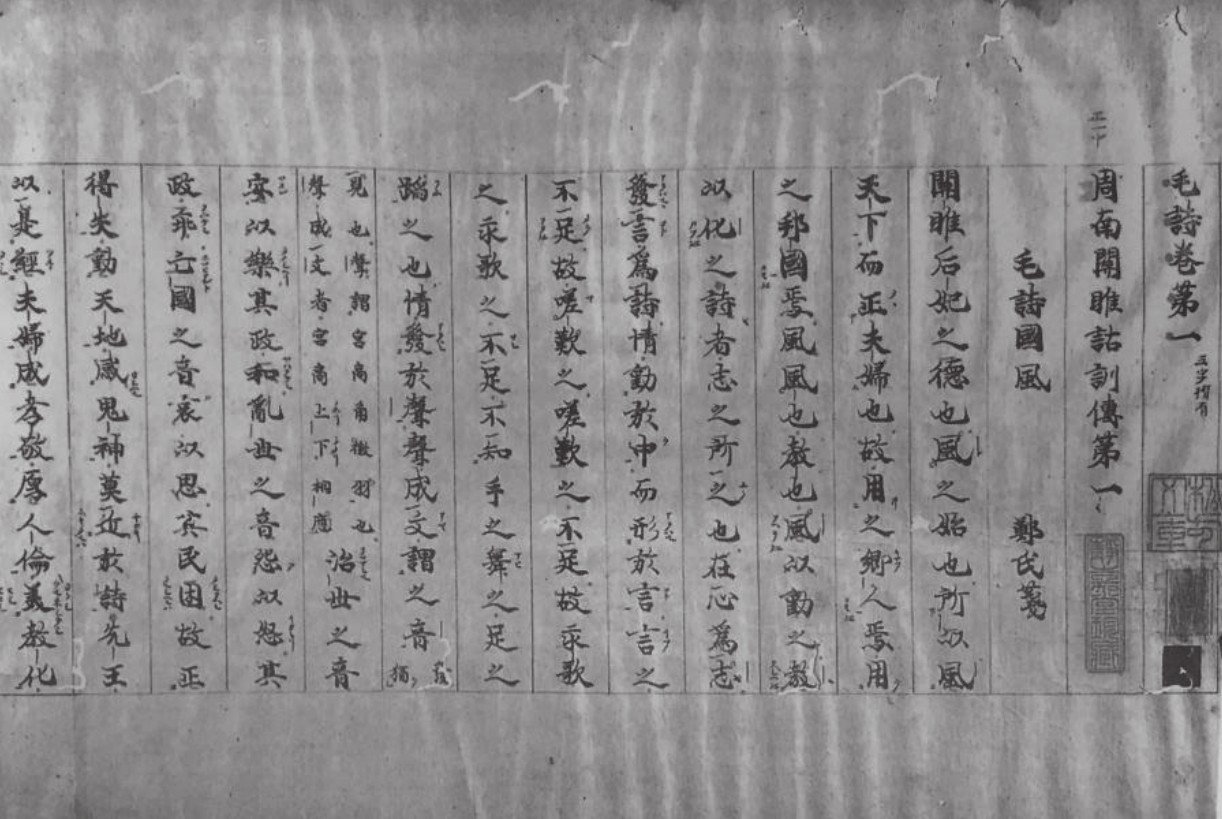 毛詩卷第一
周南關雎詁訓傳第一
毛詩國風 鄭氏箋
關雎后妃之德也風之始也所以風
天下而正夫婦也故用之鄉人焉用
之邦國焉風風也教也風以動之教
以化之詩者志之所之也在心爲志
發言爲詩情動於中而形於言言之
不足故嗟歎之嗟歎之不足故永歌
之永歌之不足不知手之舞之足之
蹈之也情發於聲聲成文謂之音 發猶
見也聲謂宮商角徵羽也
聲成文者宮商上下相應 治世之音
安以樂其政和亂世之音怨以怒其
政乖亡國之音哀以思其民困故正
得失動天地感鬼神莫近於詩先王
以是經夫婦成孝敬厚人倫美教化